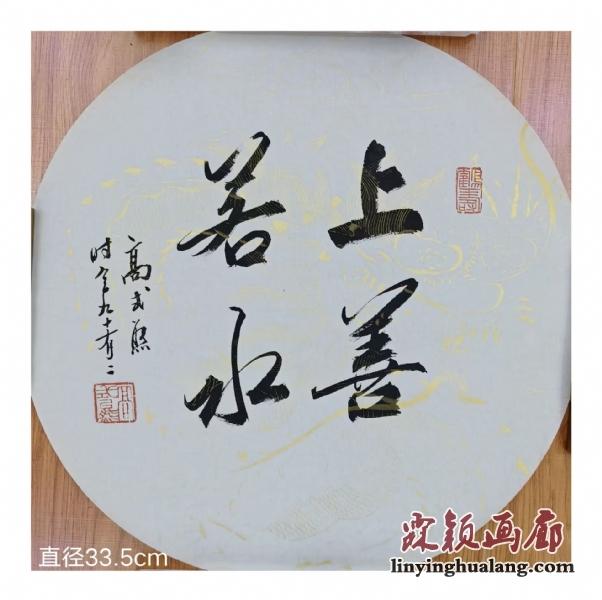 上善
若水
高式熊
时年九十有二
直径33.5cm
霖颖画廊
linyinghualang.com